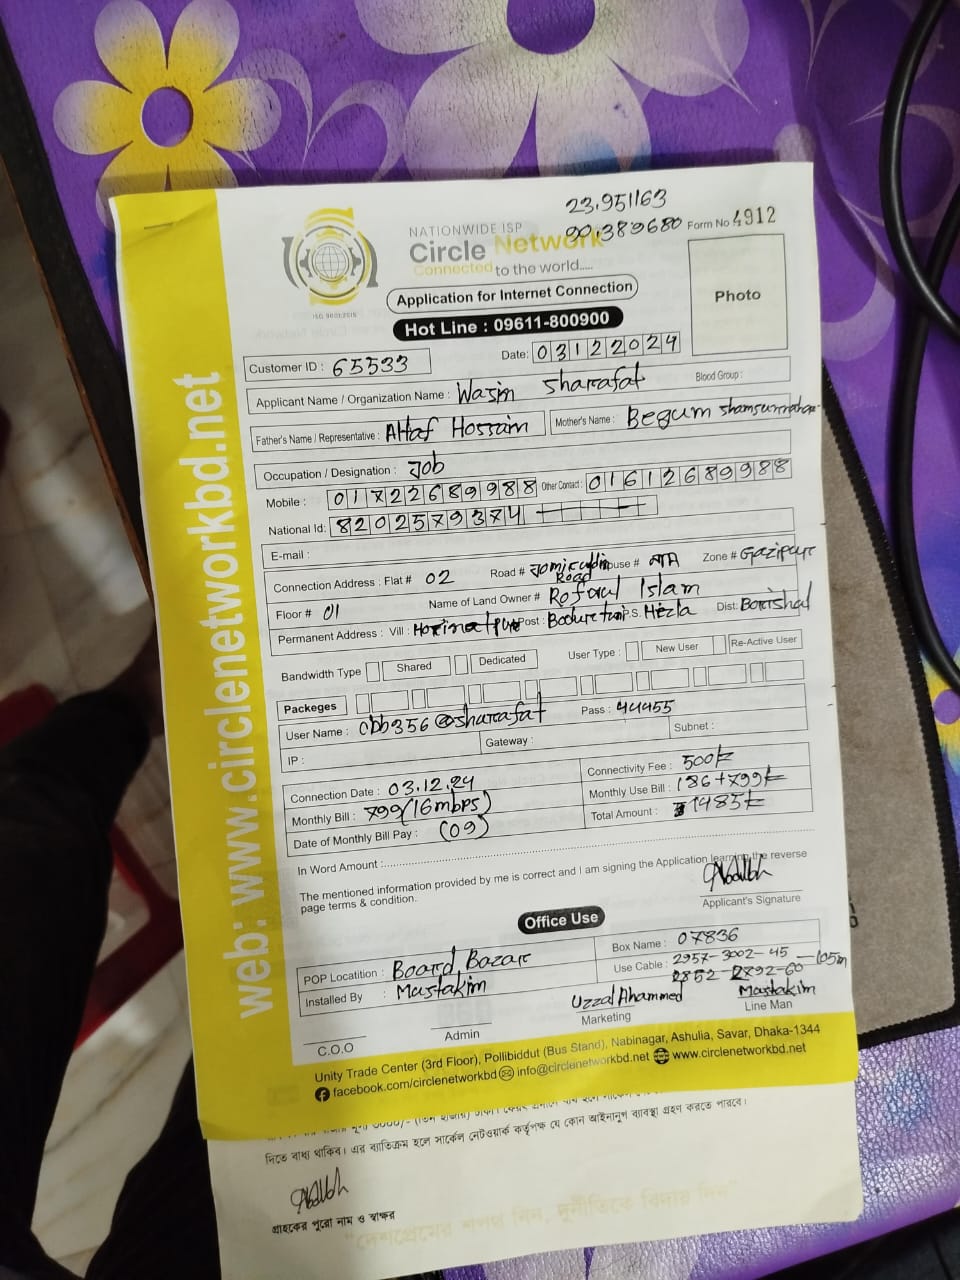 23.951163
90.389680
Form No 4912
NATIONWIDE ISP
Circle Network
Connected to the world.....
ISO 9001:2015
Application for Internet Connection
Photo
Hot Line : 09611-800900
Customer ID : 65533
Date: 03122024
Applicant Name / Organization Name : Wasim Sharafat
Blood Group :
Father's Name / Representative : Altaf Hossain
Mother's Name : Begum Shamsunnahar
Occupation / Designation : Job
Mobile : 01722689988 Other Contact : 01612689988
National Id: 8202579374
E-mail :
Connection Address : Flat # 02 Road # Jomiruddin Road House # Zone # Gazipur
Floor # 01 Name of Land Owner # Rofaul Islam
Permanent Address : Vill : Post : P.S. Hizla Dist: Borishal
Bandwidth Type Shared Dedicated User Type : New User Re-Active User
Packeges
User Name : cbb356@sharafat Pass : 44455
IP : Gateway : Subnet :
Connection Date : 03.12.24 Connectivity Fee : 500/-
Monthly Bill : 799 (16mbps) Monthly Use Bill : 186+799/-
Date of Monthly Bill Pay : (09) Total Amount : 1485/-
In Word Amount :
The mentioned information provided by me is correct and I am signing the Application learning the reverse
page terms & condition.
Applicant's Signature
Office Use
POP Locatition : Board Bazar Box Name : 07836
Installed By : Mastakim Use Cable : 2957-3002-45 —105m
2852-2792-60
Uzzal Ahammed Mastakim
C.O.O Admin Marketing Line Man
Unity Trade Center (3rd Floor), Pollibiddut (Bus Stand), Nabinagar, Ashulia, Savar, Dhaka-1344
facebook.com/circlenetworkbd info@circlenetworkbd.net www.circlenetworkbd.net
web: www.circlenetworkbd.net
দিতে বাধ্য থাকিব। এর ব্যতিক্রম হলে সার্কেল নেটওয়ার্ক কর্তৃপক্ষ যে কোন আইনানুগ ব্যবস্থা গ্রহণ করতে পারবে।
গ্রাহকের পুরো নাম ও স্বাক্ষর
"দেশপ্রেমের শপথ নিন, দুর্নীতিকে বিদায় দিন"